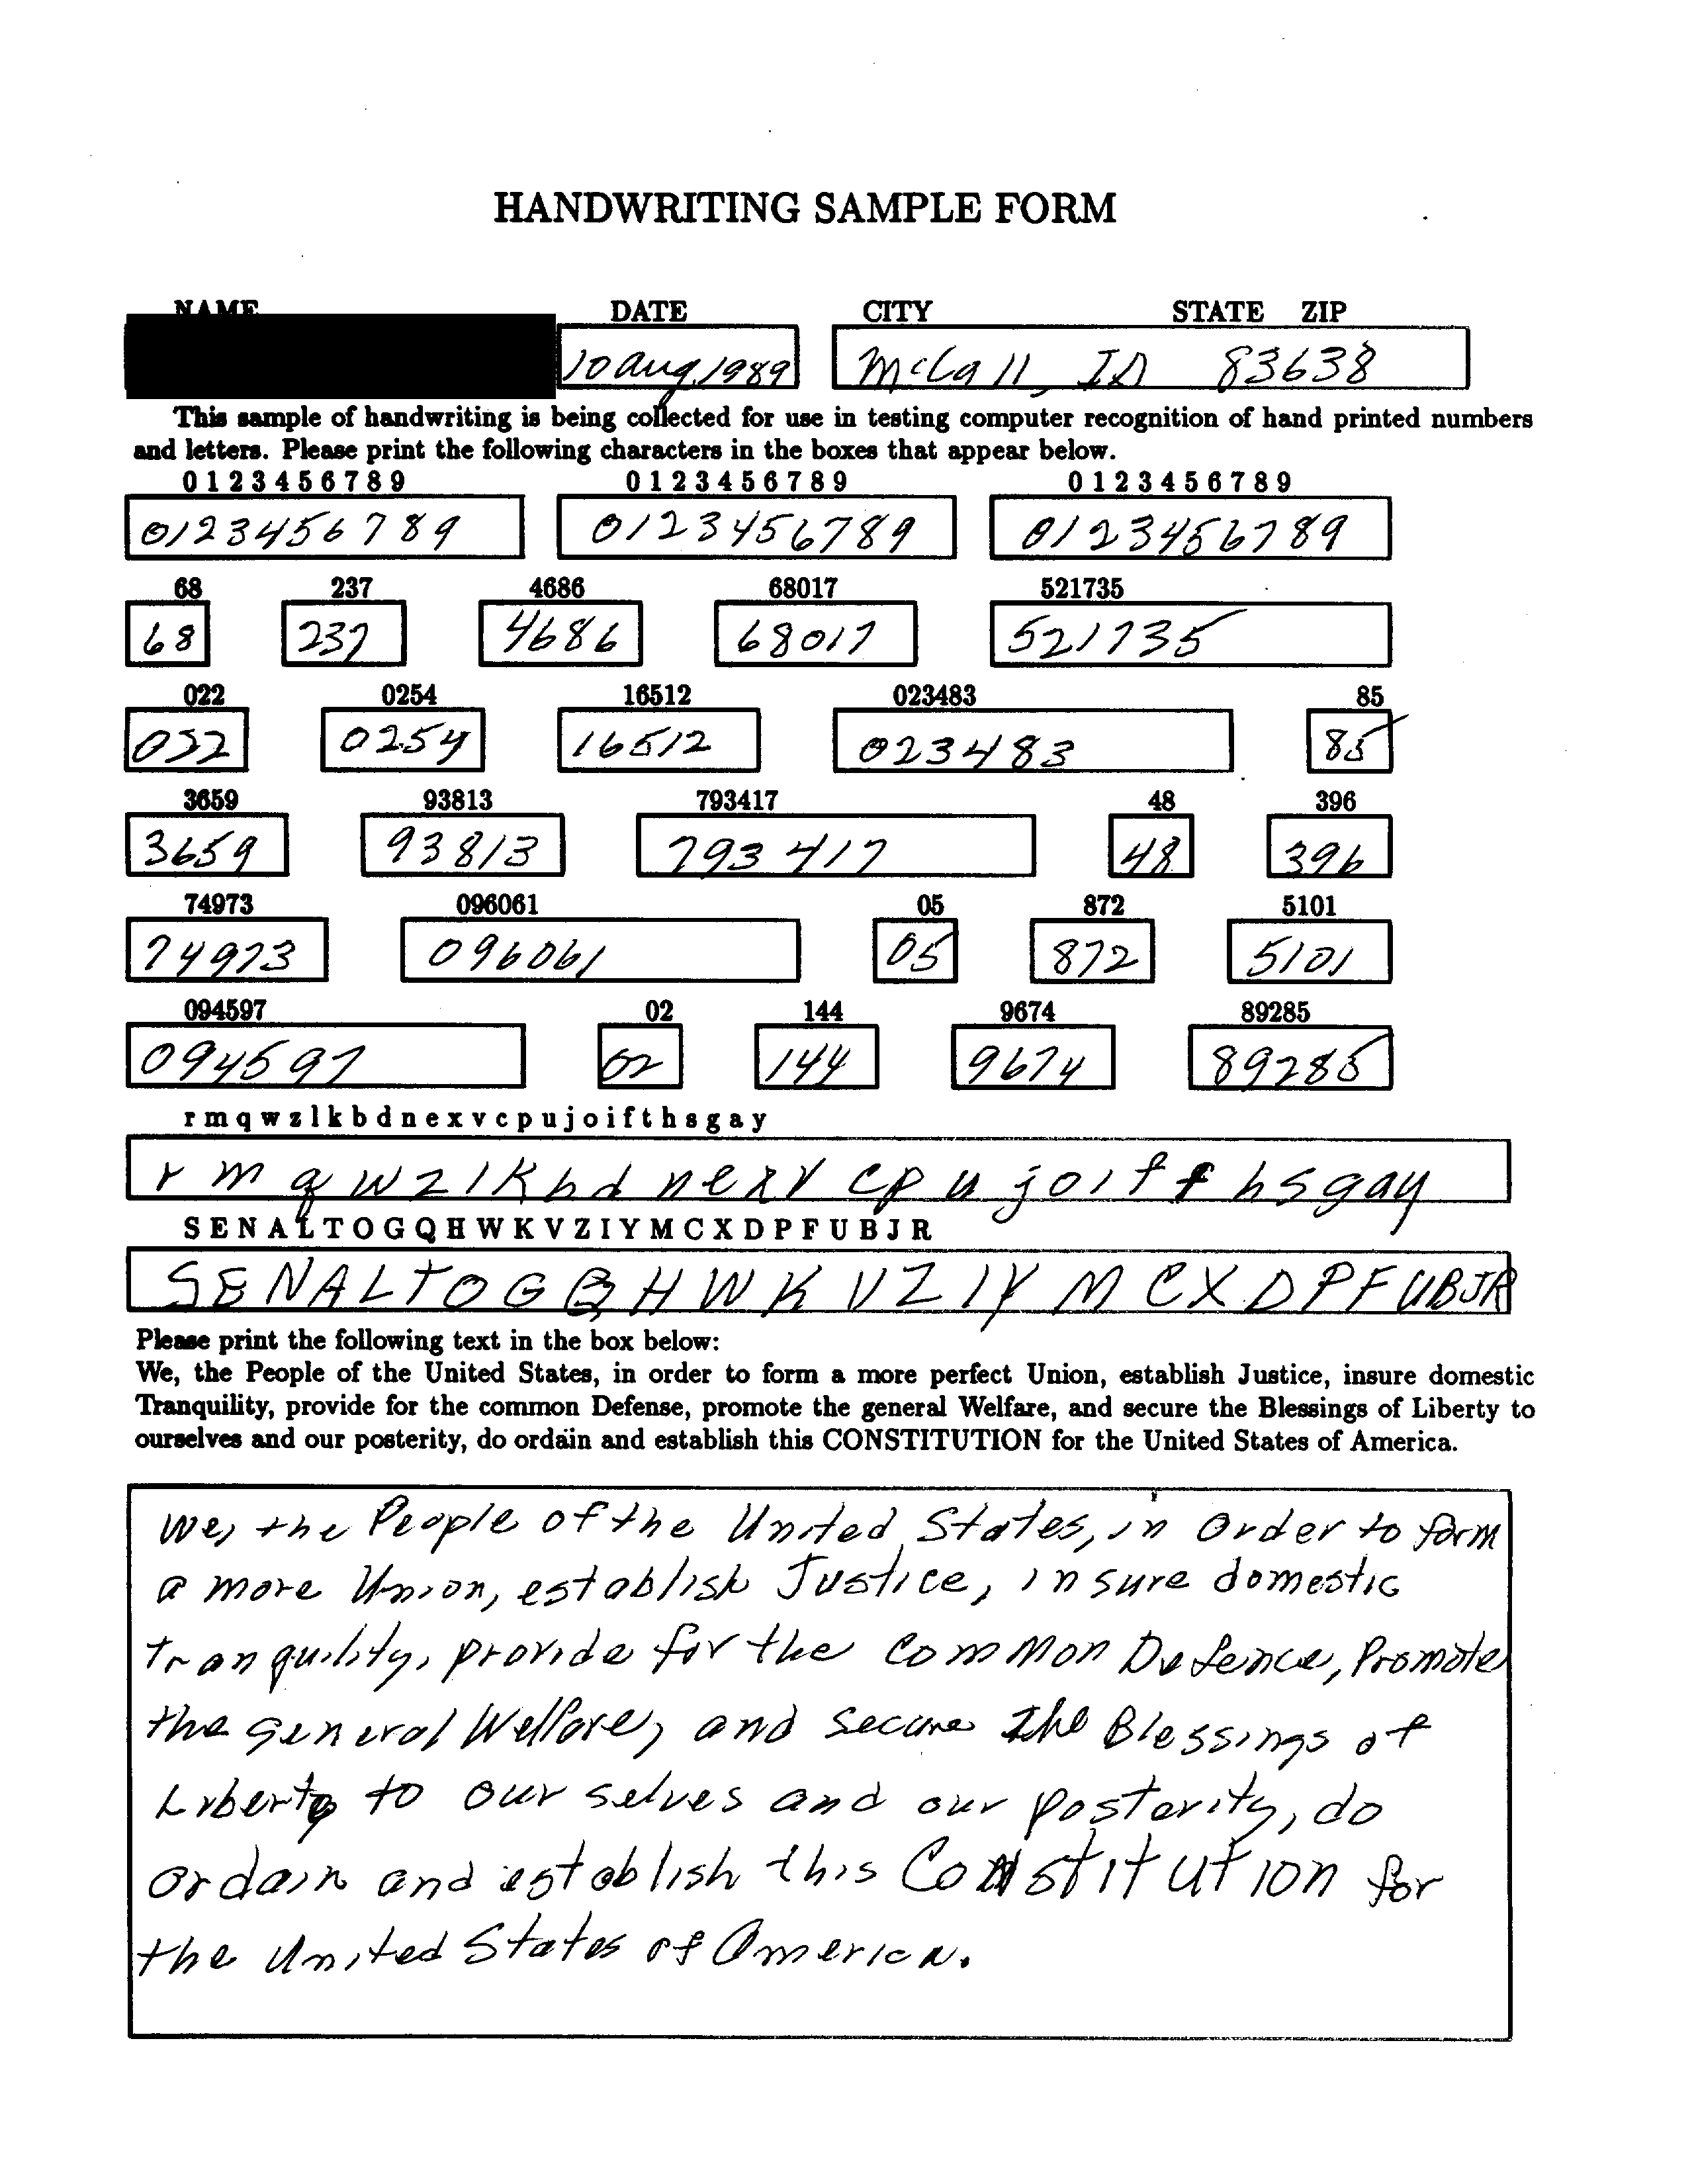 HANDWRITING SAMPLE FORM
NAME DATE CITY STATE ZIP
10 Aug 1989 McCall, ID 83638
This sample of handwriting is being collected for use in testing computer recognition of hand printed numbers
and letters. Please print the following characters in the boxes that appear below.
0 1 2 3 4 5 6 7 8 9 0 1 2 3 4 5 6 7 8 9 0 1 2 3 4 5 6 7 8 9
0123456789 0123456789 0123456789
68 237 4686 68017 521735
68 237 4686 68017 521735
022 0254 16512 023483 85
032 0254 16512 023483 85
3659 93813 793417 48 396
3659 93813 793417 48 396
74973 096061 05 872 5101
74973 096061 05 872 5101
094597 02 144 9674 89285
094597 02 144 9674 89285
r m q w z l k b d n e x v c p u j o i f t h s g a y
r m q w z l k b d n e x v c p u j o i f t h s g a y
S E N A L T O G Q H W K V Z I Y M C X D P F U B J R
S E N A L T O G Q H W K V Z I Y M C X D P F U B J R
Please print the following text in the box below:
We, the People of the United States, in order to form a more perfect Union, establish Justice, insure domestic
Tranquility, provide for the common Defense, promote the general Welfare, and secure the Blessings of Liberty to
ourselves and our posterity, do ordain and establish this CONSTITUTION for the United States of America.
We, the People of the United States, in order to form
a more Union, establish Justice, insure domestic
tranquility, provide for the common Defence, Promote
the general Welfare, and secure the Blessings of
Liberty to our selves and our posterity, do
ordain and establish this Constitution for
the United States of America.